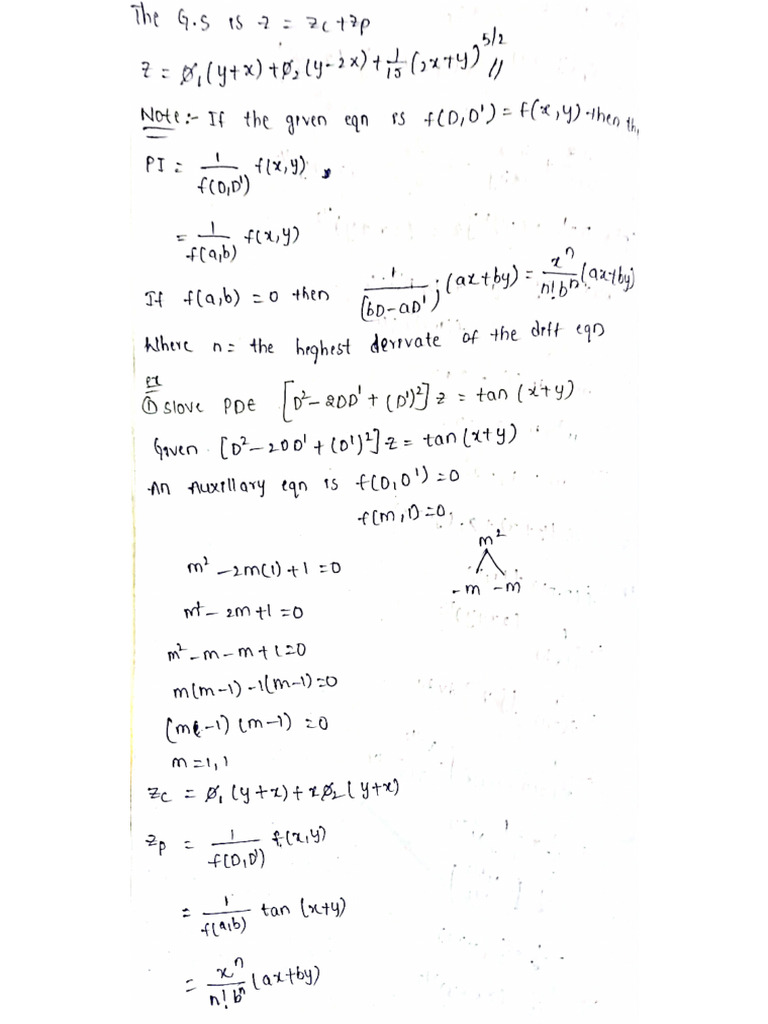 The G.S is z = zc+zp
z = ø₁(y+x)+ø₂(y-2x)+1/15(2x+y)^5/2 //
Note:- If the given eqn is f(D,D')=f(x,y) then th
PI = 1/f(D,D') f(x,y)
= 1/f(a,b) f(x,y)
If f(a,b)=0 then 1/(bD-aD') (ax+by) = x^n/n!b^n (ax+by)
Where n= the heghest derevate of the diff eqn
ex
① slove PDE [D²-2DD'+(D')²]z = tan(x+y)
Given [D²-2DD'+(D')²]z = tan(x+y)
An Auxillary eqn is f(D,D')=0
f(m,1)=0.
m²
-m -m
m²-2m(1)+1=0
m²-2m+1=0
m²-m-m+1=0
m(m-1)-1(m-1)=0
(m-1)(m-1)=0
m=1,1
zc = ø₁(y+x)+xø₂(y+x)
zp = 1/f(D,D') f(x,y)
= 1/f(a,b) tan(x+y)
= x^n/n!b^n (ax+by)